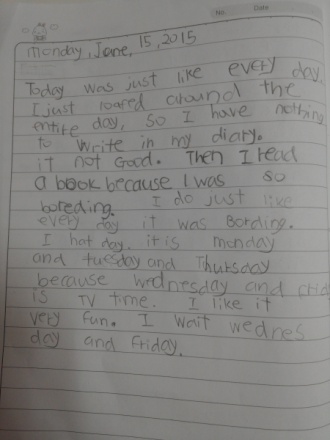 No. Date
monday, June, 15, 2015
Today was just like every day.
I just loafed around the
entire day, so I have nothing
to write in my diary.
it not Good. Then I read
a book because I was so
boreding. I do just like
every day it was Bording.
I hat day. it is monday
and tuesday and Thursday
because wednesday and frid
is TV time. I like it
very fun. I wait wednes
day and Friday.